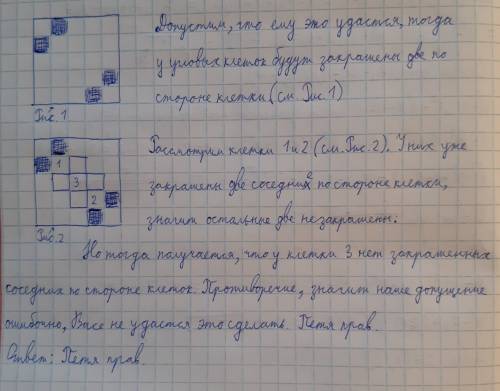 Допустим, что ему это удастся, тогда
у угловых клеток будут закрашены две по
стороне клетки (см. Рис. 1)
Рис. 1
1
3
2
Рис. 2
Рассмотрим клетки 1 и 2 (см. Рис. 2). У них уже
закрашены две соседних по стороне клетки,
значит остальные две незакрашены.
Но тогда получается, что у клетки 3 нет закрашенных
соседних по стороне клеток. Противоречие, значит наше допущение
ошибочно, Васе не удастся это сделать. Петя прав.
Ответ: Петя прав.